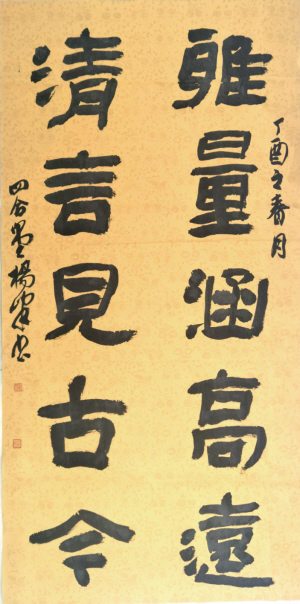 丁酉之春月
雅量涵高遠
清言見古今
四合堂楊